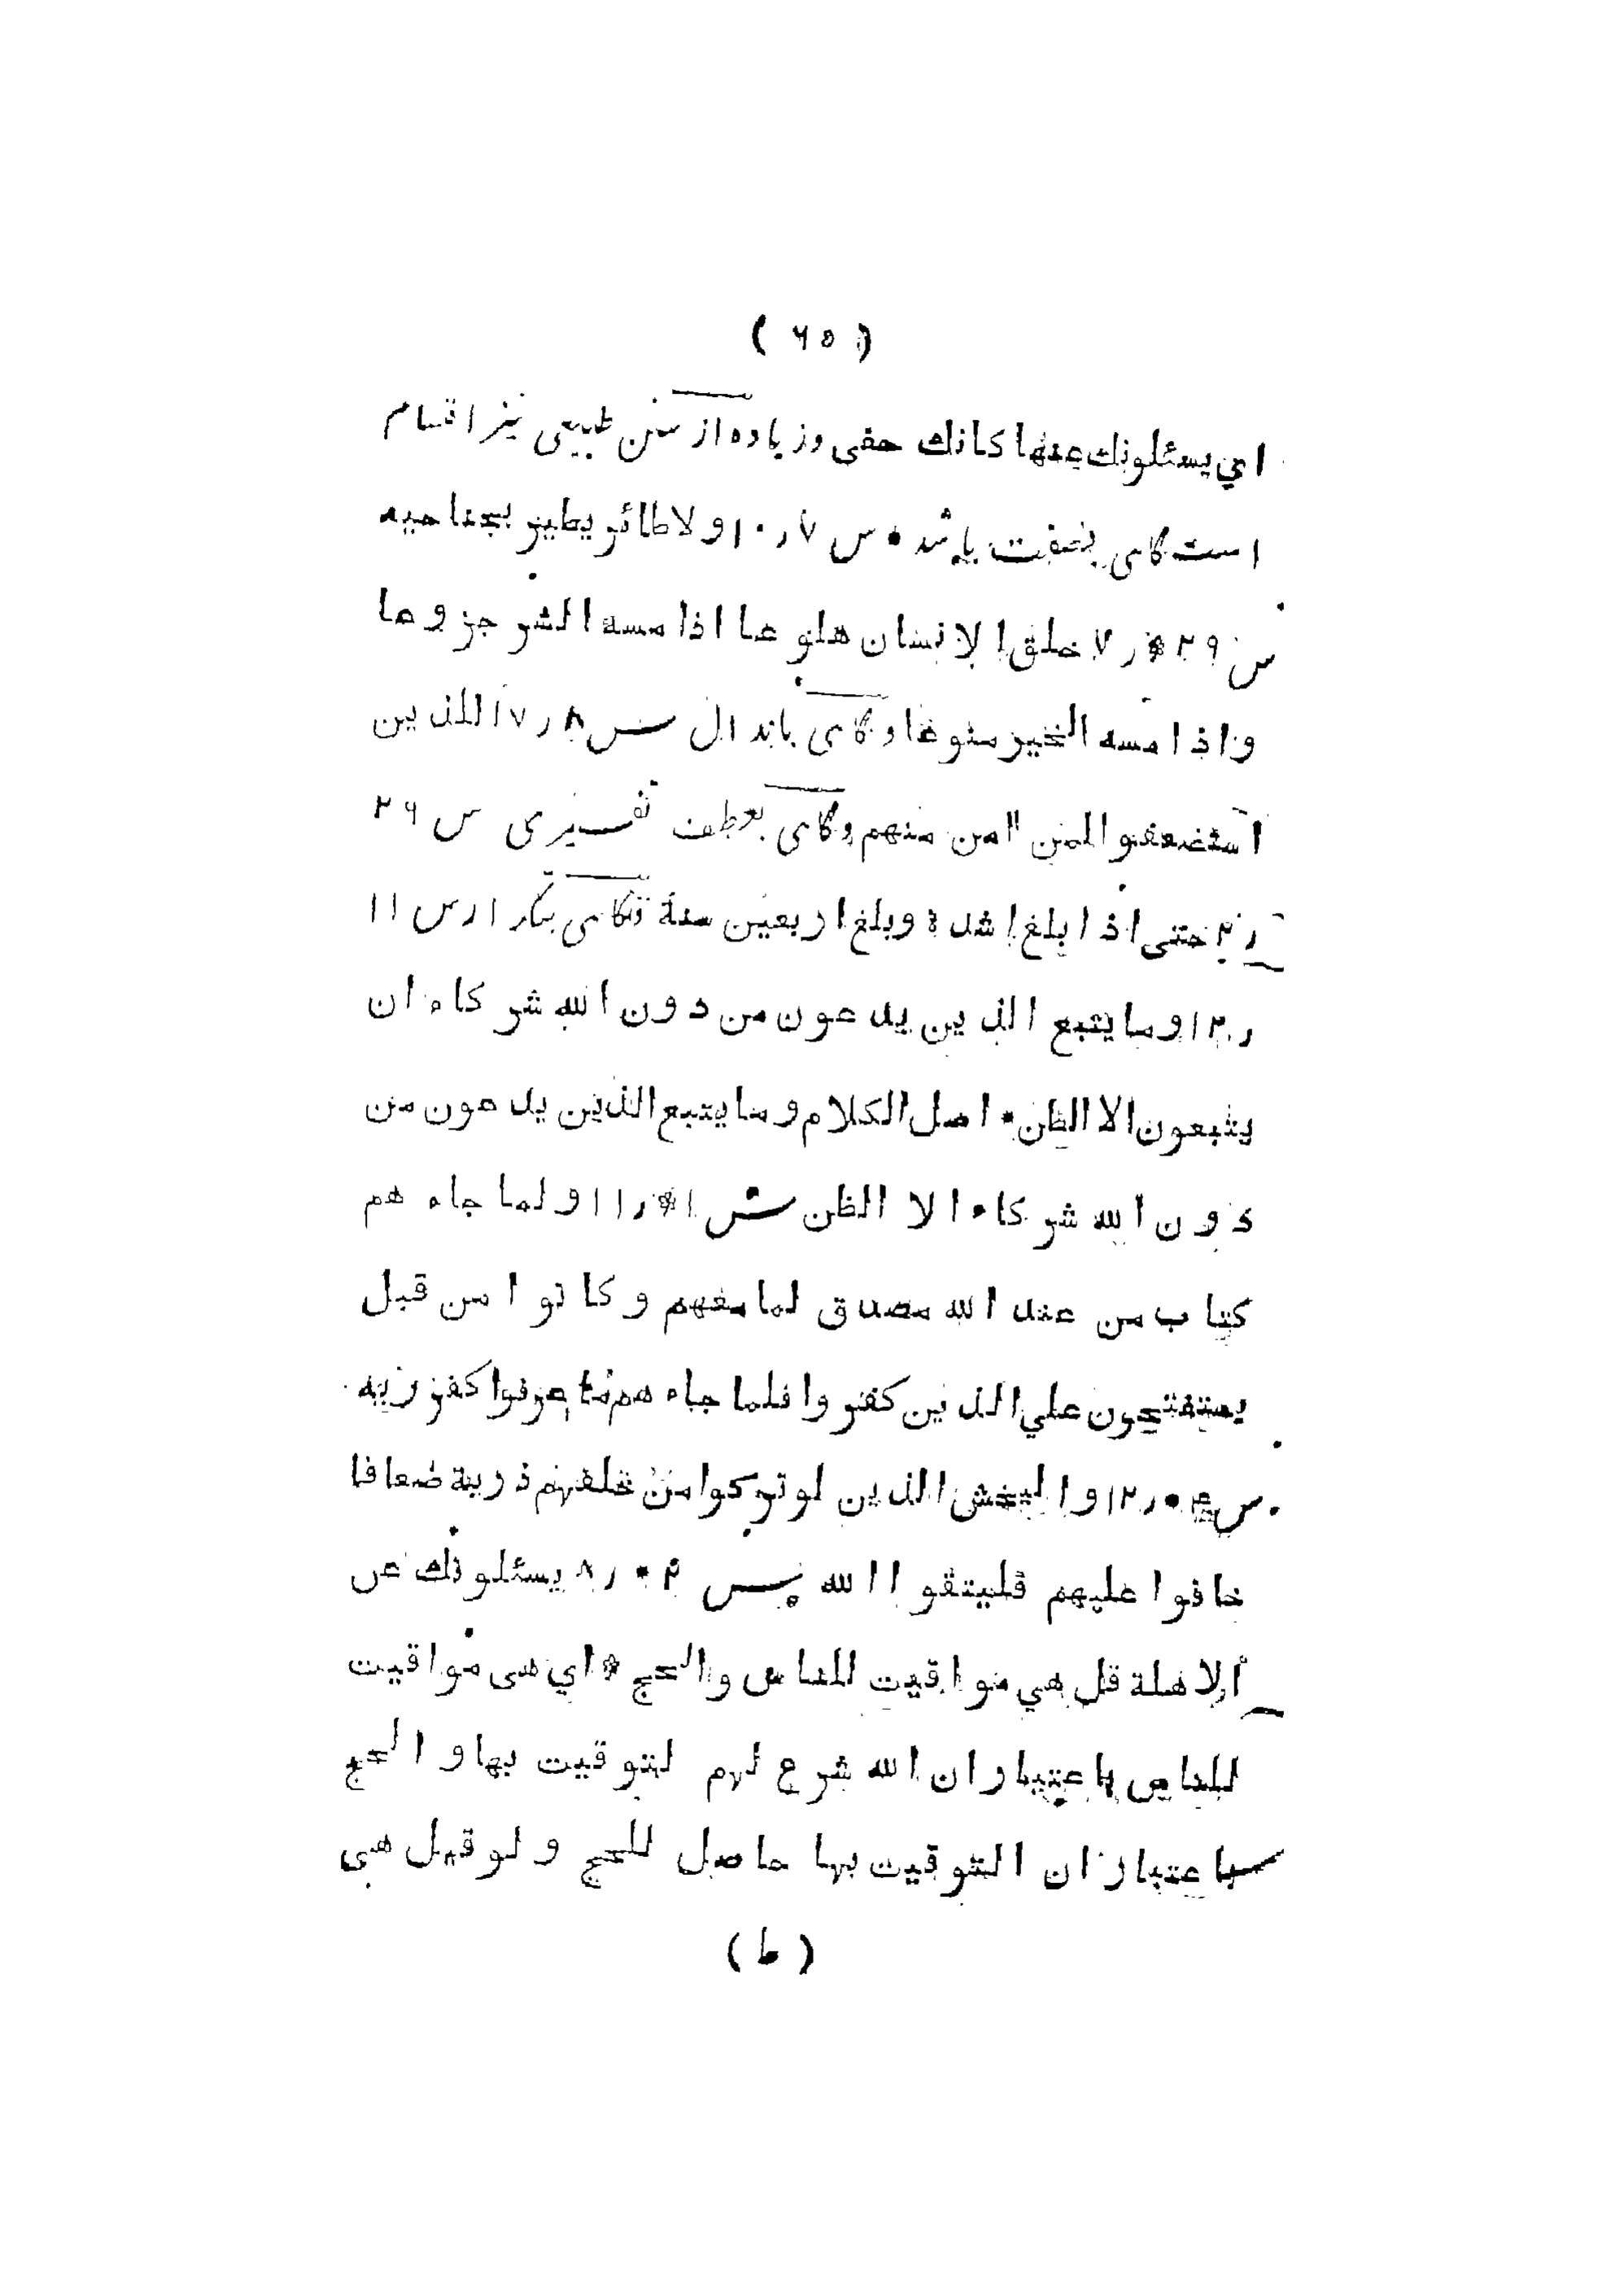 ( ٦٥ )
اي يسئلونك عنها كانك حفى وزياده از سنن طبيعى نيز اقسام
است كاهى بصفت باشد * س ٧ ر ١٠ ولا طائر يطير بجناحيه
س ٢٩ * ر ٧ خلق الانسان هلوعا اذا مسه الشر جزوعا
واذا مسه الخير منوعا وكاهى بابدال س ٨ ر ١٧ للذين
استضعفوا لمن امن منهم وكاهى بعطف تفسيرى س ٢٦
ر ٢ حتى اذا بلغ اشده وبلغ اربعين سنة وكاهى بتكرار س ١١
ر ١٢ وما يتبع الذين يدعون من دون الله شركاء ان
يتبعون الا الظن * اصل الكلام وما يتبع الذين يدعون من
دون الله شركاء الا الظن س ١ * ر ١١ ولما جاء هم
كتاب من عند الله مصدق لما معهم وكانوا من قبل
يستفتحون علي الذين كفروا فلما جاء هم ما عرفوا كفروا به
س ٤ * ر ١٢ واليخش الذين لو تركوا من خلفهم ذرية ضعافا
خافوا عليهم فليتقوا الله س ٢ * ر ٨ يسئلونك عن
الاهلة قل هي مواقيت للناس والحج * اي هى مواقيت
للناس باعتبار ان الله شرع لهم التوقيت بها والحج
باعتبار ان التوقيت بها حاصل للحج ولو قيل هى
( ط )